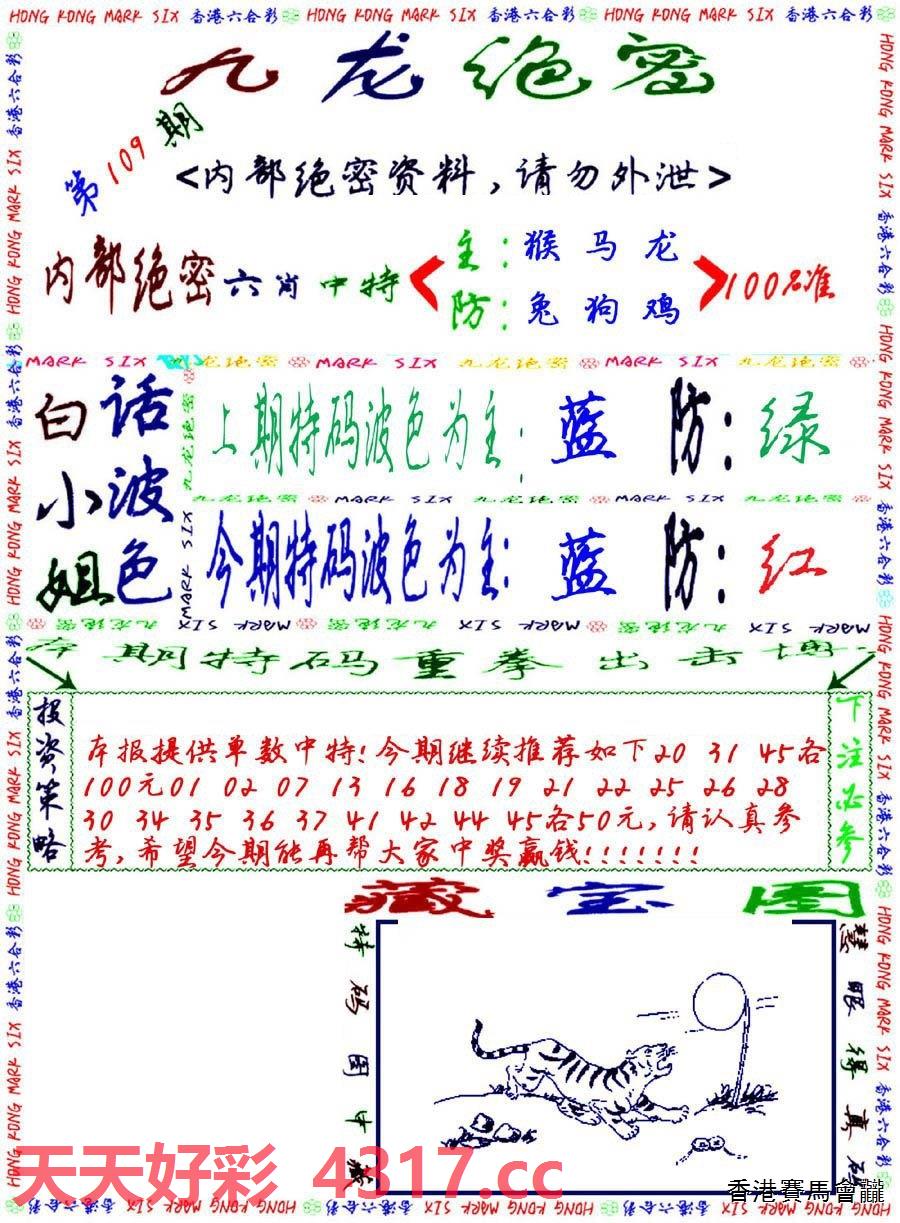 HONG KONG MARK SIX 香港六合彩 HONG KONG MARK SIX 香港六合彩 HONG KONG MARK SIX 香港六合彩
九龙绝密
第109期
<内部绝密资料,请勿外泄>
内部绝密六肖中特
主:猴马龙
防:兔狗鸡
100%准
MARK SIX 九龙绝密 MARK SIX 九龙绝密 MARK SIX 九龙绝密
白小姐
话波色
上期特码波色为主:蓝 防:绿
九龙绝密 MARK SIX 九龙绝密 MARK SIX 九龙绝密
今期特码波色为主:蓝 防:红
本期特码重拳出击博
投资策略
本报提供单数中特!今期继续推荐如下20 31 45各
100元01 02 07 13 16 18 19 21 22 25 26 28
30 34 35 36 37 41 42 44 45各50元,请认真参
考,希望今期能再帮大家中奖赢钱!!!!!!!
下注必参
藏宝图
特码图中
慧眼得真码
天天好彩 4317.cc
香港賽馬會